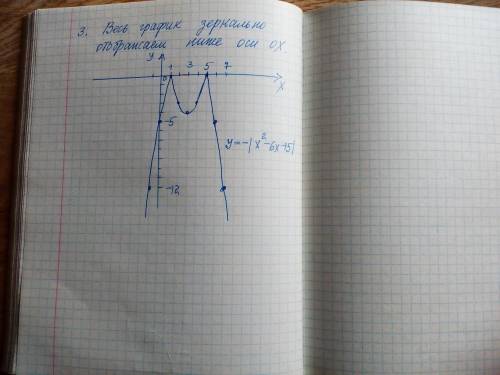 3. Весь график зеркально
отображаем ниже оси OX.
y
0 1 3 5 7
x
-5
y=-|x²-6x+5|
-12